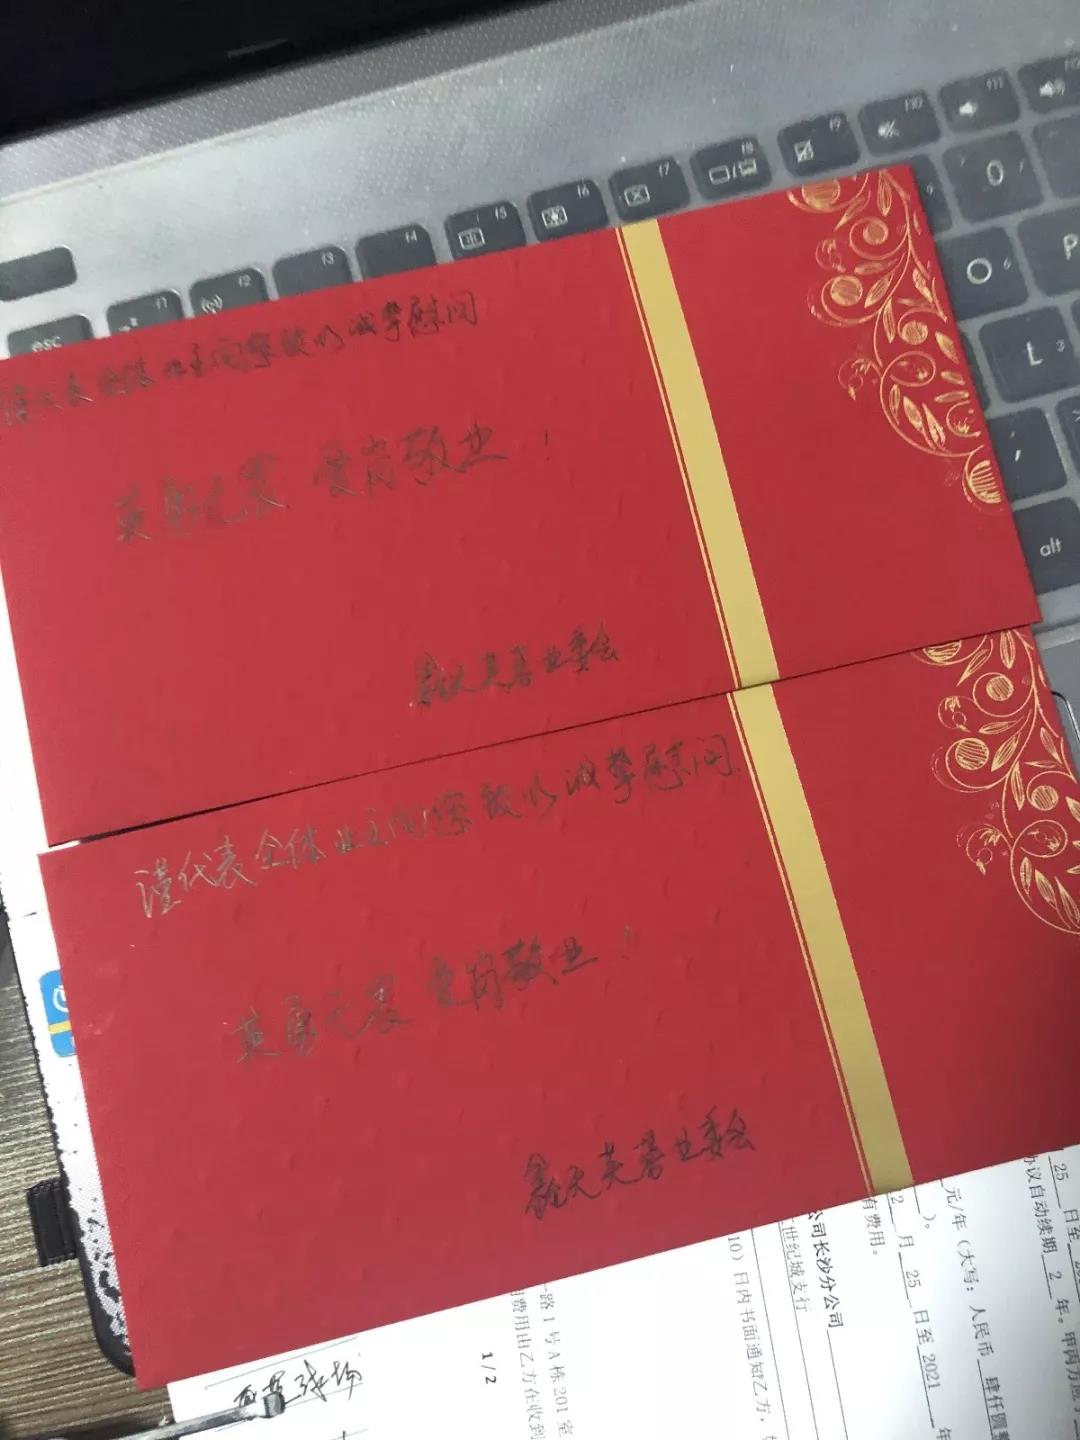 esc
f1
f2
f3
f4
f5
f6
f7
f8
f9
f10
f11
O
P
L
alt
谨代表全体业主向您致以诚挚慰问
英勇无畏 爱岗敬业！
鑫天芙蓉业委会
谨代表全体业主向您致以诚挚慰问
英勇无畏 爱岗敬业！
鑫天芙蓉业委会
25 日至
协议自动续期 2 年。甲丙方应
元/年（大写：人民币 肆仟圆整
）。
2 月 25 日至 2021 年
有费用。
公司长沙分公司
世纪城支行
10）日内书面通知乙方，
路1号A栋201室
费用由乙方在收到
1/2